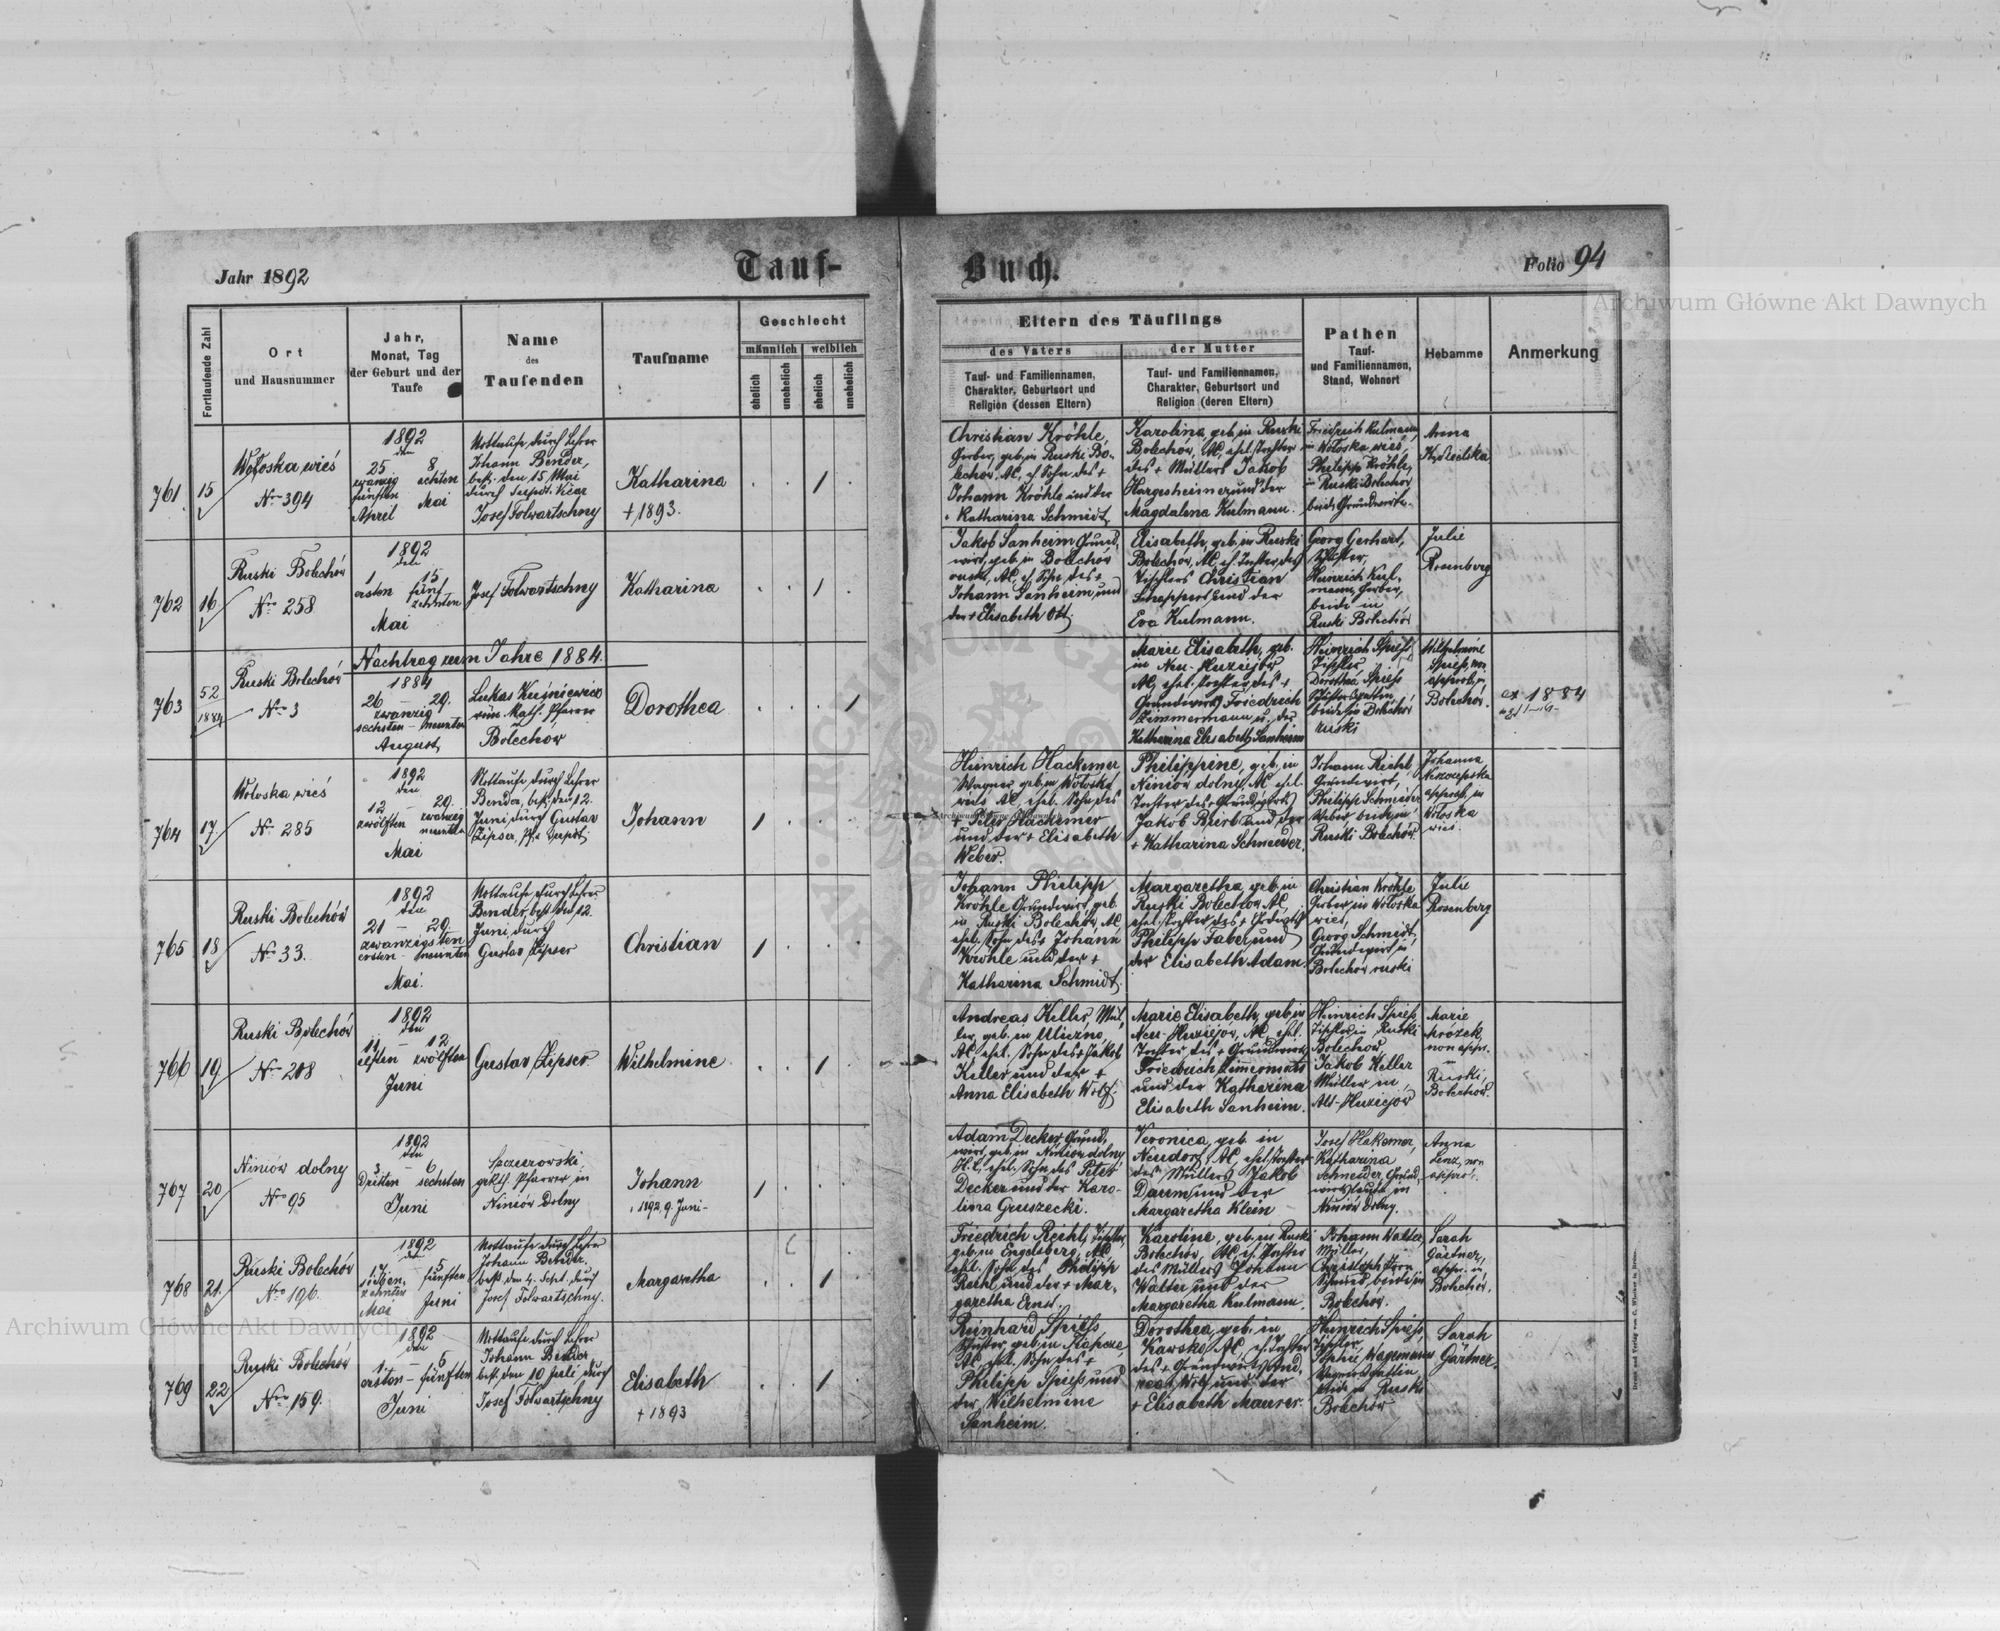 Jahr 1892
Tauf-
Buch.
Folio 94
Archiwum Główne Akt Dawnych
Fortlaufende Zahl
Ort
und Hausnummer
Jahr,
Monat, Tag
der Geburt und der
Taufe
Name
des
Taufenden
Taufname
Geschlecht
männlich
weiblich
ehelich
unehelich
ehelich
unehelich
Eltern des Täuflings
des Vaters
der Mutter
Tauf- und Familiennamen,
Charakter, Geburtsort und
Religion (dessen Eltern)
Tauf- und Familiennamen,
Charakter, Geburtsort und
Religion (deren Eltern)
Pathen
Tauf-
und Familiennamen,
Stand, Wohnort
Hebamme
Anmerkung
761.
15
Wołoska wieś
No 394
1892
den
25 8
zwanzig achten
fünften Mai
April
Nottaufe durch Lehrer
Johann Bender,
best. den 15 Mai
durch Supert. Vicar
Josef Folwartschny
Katharina
+ 1893.
1
Christian Kröhle,
Gerber, geb. in Ruski Bo-
lechów, AC, eh. Sohn des +
Johann Kröhle und der
+ Katharina Schmidt
Karolina, geb. in Ruski
Bolechów, AC, ehel. Tochter
des + Müllers Jakob
Hargesheimer und der
Magdalena Kulmann.
Friedrich Kulmann,
in Wołoska wieś,
Philipp Kröhle,
in Ruski Bolechów
beide Grundwirte.
Anna
762
16
Ruski Bolechów
No 258
1892
den
1 15
ersten fünf
zehnten
Mai
Josef Folwartschny
Katharina
1
Jakob Sanheim, Grund,
wirt, geb. in Bolechów
ruski, AC, eh. Sohn des +
Johann Sanheim, und
der + Elisabeth Ott.
Elisabeth, geb. in Ruski
Bolechów, AC, eh. Tochter des
Tischlers Christian
Schappert und der
Eva Kulmann.
Georg Gerhart,
Schuster,
Heinrich Kul,
mann, Gerber,
beide in
Ruski Bolechów
Julie
Rosenberg
Nachtrag zum Jahre 1884.
763
52
1884
Ruski Bolechów
No 3
1884
26 – 29.
zwanzig
sechsten – neunten
August
Lukas Kuśniewicz
röm. kath. Pfarrer
Bolechow
Dorothea
1
Marie Elisabeth, geb.
in Neu-Huziejów
AC, ehel. Tochter des +
Grundwirts Friedrich
Zimmermann u. der
Katharina Elisabeth Sanheim
Heinrich Spiess
Tischler,
Dorothea Spiess
Schustersgattin,
beide in Bolechów
ruski
Wilhelmine
Spiess, non
approb. in
Bolechów.
ex 1884
764
17.
Wołoska wieś
No 285
1892
den
12 – 29.
zwölften zwanzig
neunten
Mai
Nottaufe durch Lehrer
Bender, best. den 12.
Juni durch Gustav
Zipser,
Johann
1
Heinrich Hackemer
Wagner geb. in Wołoska
wieś AC, ehel. Sohn des
+ Peter Hackemer
und der + Elisabeth
Weber.
Philippine, geb. in
Niniów dolny, AC ehel.
Tochter des + Grundwirts
Jakob Bierb und der
+ Katharina Schneider.
Johann Riehl
Grundwirt,
Philipp Schmeider
Weber beide in
Ruski Bolechów
Johanna
approb. in
Wołoska
wieś.
765
18
Ruski Bolechów
No 33.
1892
den
21 – 29.
zwanzigsten
ersten – neunten
Mai.
Nottaufe durch Lehrer
Bender, best. den 12.
Juni, durch
Gustav Zipser
Christian
1
Johann Philipp
Kröhle Grundwirt, geb.
in Ruski Bolechów, AC
ehel. Sohn des + Johann
Kröhle und der +
Katharina Schmidt.
Margaretha, geb. in
Ruski Bolechow AC,
ehel. Tochter des +
Philipp Faber und
der Elisabeth Adam.
Christian Kröhle
Gerber in Wołoska
wieś,
Georg Schmidt,
Grundwirt in
Bolechów ruski
Julie
Rosenberg
766
19
Ruski Bolechów
No 208
1892
den
11 – 12
elften – zwölften
Juni
Gustav Zipser
Wilhelmine
1
Andreas Keller, Mül,
ler, geb. in Uliczno,
AC ehel. Sohn des + Jakob
Keller und der +
Anna Elisabeth Wolf.
Marie Elisabeth, geb. in
Neu-Huziejów, AC, ehel.
Tochter des + Grundwirts
Friedrich Zimmermann
und der Katharina
Elisabeth Sanheim.
Heinrich Spiess,
Tischler in Ruski
Bolechow
Jakob Keller
Müller in
Alt-Huziejów
Marie
Mrózek,
non appr.
in
Ruski,
Bolechów.
767
20
Niniów dolny
No 95
1892
den
3 – 6
Dritten sechsten
Juni
gr. kth. Pfarrer in
Niniów Dolny
Johann
+ 1892, 9. Juni-
1
Adam Decker, Grund,
wirt, geb. in Niniów dolny
H.C., ehel. Sohn des Peter
Decker und der Karo-
lina Gruszecki.
Veronica, geb. in
Neudorf, AC, ehel. Tochter
des Müllers Jakob
Daum und der
Margaretha Klein
Josef Hakemer,
Katharina
Schneider, Grund,
wirtsleute in
Niniów Dolny.
Anna
Lenz, non
approb.
768
21.
Ruski Bolechów
No 196.
1892
den
17 – 5
siebzen, fünften
zehnten
Mai Juni
Nottaufe durch Lehrer
Johann Bender,
best. den 4. Sept. durch
Josef Folwartschny.
Margaretha
1
Friedrich Riehl, Tischler,
geb. in Engelsberg, AC,
ehel. Sohn des Philipp
Riehl und der + Mar,
garetha Ernst.
Karoline, geb. in Ruski
Bolechów, AC, eh. Tochter
des Müllers Johann
Walter und der
Margaretha Kulmann.
Johann Walter,
Müller,
Christoph Jorn
Schmied beide in
Bolechów.
Sarah
Gärtner,
appr. in
Bolechów.
769
22
Ruski Bolechów
No 159.
1892
den
1 – 5
ersten – fünften
Juni
Nottaufe durch Lehrer
Johann Bender,
best. den 10 Juli, durch
Josef Folwartschny
Elisabeth
+ 1893
1
Reinhard Spiess
Schuster, geb. in
AC, ehel. Sohn des +
Philipp Spiess und
der Wilhelmine
Sanheim.
Dorothea, geb. in
Kawsko, AC, eh. Tochter
des + Grundwirts And,
reas Wolf und der
+ Elisabeth Maurer.
Heinrich Spiess,
Tischler,
Sophie Wagemann
Wagnersgattin
beide in Ruski
Bolechów
Sarah
Gärtner.
Archiwum Główne Akt Dawnych